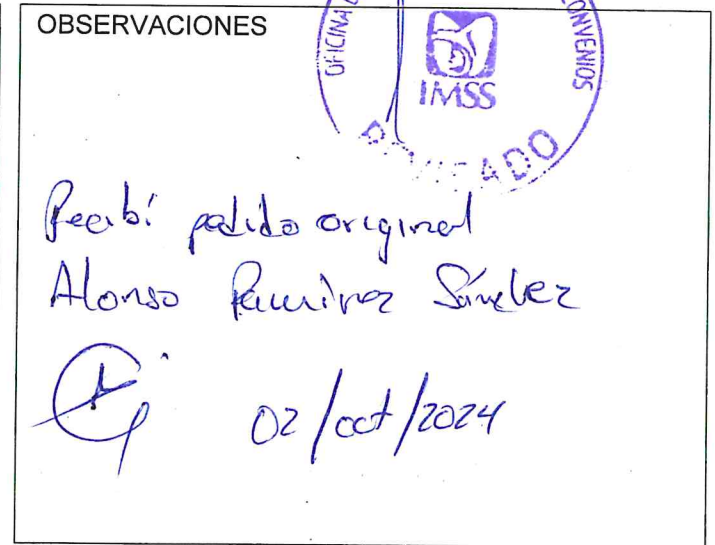 OBSERVACIONES
OFICINA
CONVENIOS
IMSS
Recibí pedido original
Alonso Ramírez Sánchez
02/oct/2024